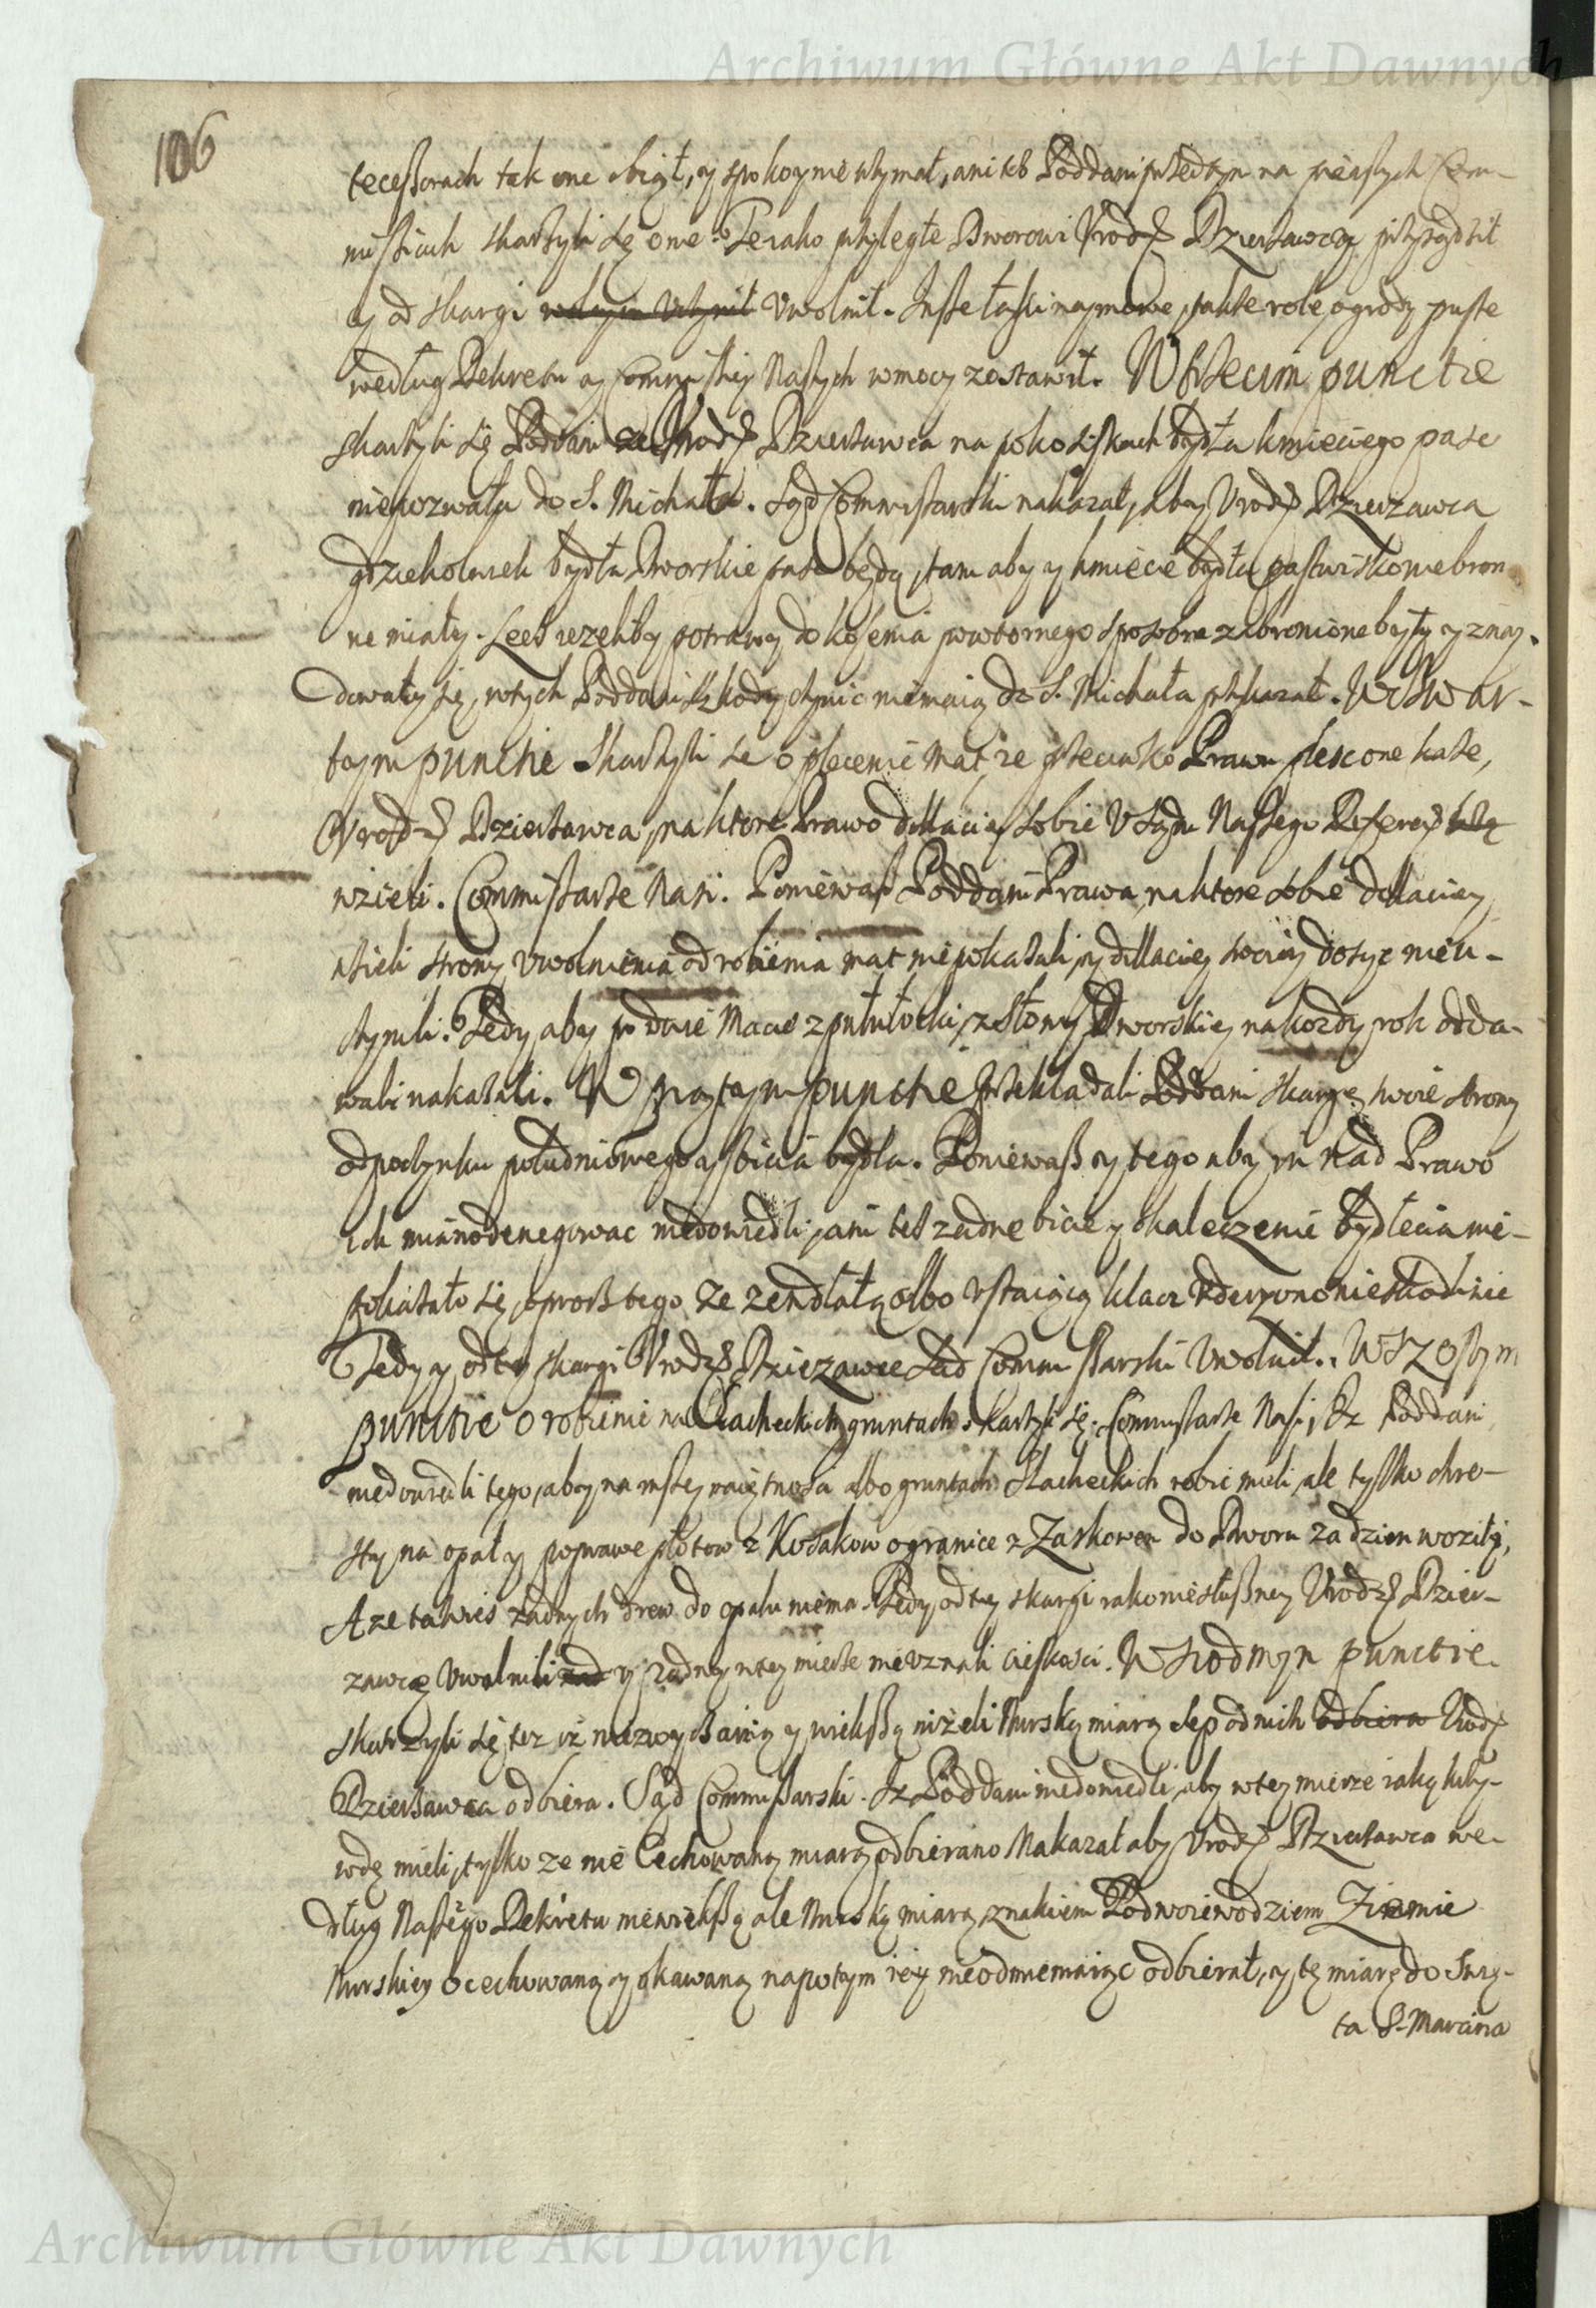 Archiwum Główne Akt Dawnych
106
tecessorach tak one obiął, y spokoynie trzymał, ani też Poddani przedtym na pierszych Com-
missiach skarżyli się o nie. Te iako przyległe Dworowi Urodz. Dzierżawcy przysądził
y od skargi wolnym uczynił uwolnił. Insze łąki naymowe, także role, ogrody puste
według Dekretu y Commissiey Naszych w mocy zostawił. W trzecim punctie
skarżyli się Poddani że Urodz. Dzierżawca na pokosiskach bydła kmieciego paść
nie pozwala do S. Michała. Sąd Commissarski nakazał, aby Urodz. Dzierzawca
gdziekolwiek bydła Dworskie paść będą, tam aby y kmiecie bydła pastwisko niebron
ne miały. Lecz ieżeliby potrawy do kosenia powtornego sposobne zabronione były y znay-
dowały się, w tych Poddani szkody czynić nie maią do S. Michała przykazał. W czwar-
tym punctie skarżyli się o plecenie mat, że przeciwko Prawu plesc one każe,
Urodz. Dzierżawca, na ktore Prawo dillacią sobie u Sądu Naszego Referen. byli
wzieli. Commissarze Nasi. Ponieważ Poddani Prawa, na ktore sobie dillaciey
wzieli strony uwolnienia od robienia mat nie pokazali, y dillaciey swoiey dosyc nieu-
czynili. Tedy aby po dwie macie z pułwłocki, z słomy Dworskiey na kożdy rok odda-
wali nakazali. W piątym punctie przekładali Poddani skargę swoie strony
odpoczynku południowego y bicia bydła. Ponieważ y tego aby im nad Prawo
ich miano denegowac niedowiedli, ani też żadne bicie y okaleczenie bydlęcia nie-
pokazało się, oprosz tego, że zendlałą albo ustaiącą klacz uderzono nieszkodliwie
Tedy y od tey skargi Urodz. Dzierzawce Sąd Commissarski uwolnił. W szostym
punctie o robienie na Slacheckich gruntach skarżyli się. Commissarze Nasi, Iż Poddani
niedowiedli tego, aby na inszey maiętnosci albo gruntach Slacheckich robic mieli, ale tylko chro-
sty na opał y poprawe płotow z Kozakow o granice z Zaskowem do Dworu za dzien wozili,
A że ta wies żadnych drew do opału niema. Tedy od tey skargi iako niesłuszney Urodz. Dzier-
zawcę uwolnili zad y żadney w tey mierze nie uznali cieszkosci. W siodmym punctie.
skarzyli się też iż niezwyczainą y wiekszą niżeli Nurską miarą sep od nich odbiera Urodz.
Dzierżawca odbiera. Sąd Commissarski. Iż Poddani niedowiedli, aby w tey mierze iaką krzy-
wdę mieli, tylko że nie cechowaną miarą odbierano Nakazał aby Urodz. Dzierżawca we-
dług Naszego Dekretu niewiekszą ale Nurską miarą znakiem Podwoiewodziem Ziemie
Nurskiey ocechowaną y okawaną napotym iey nieodmieniaiąc odbierał, y tę miarę do Swię-
ta S. Marcina
Archiwum Główne Akt Dawnych